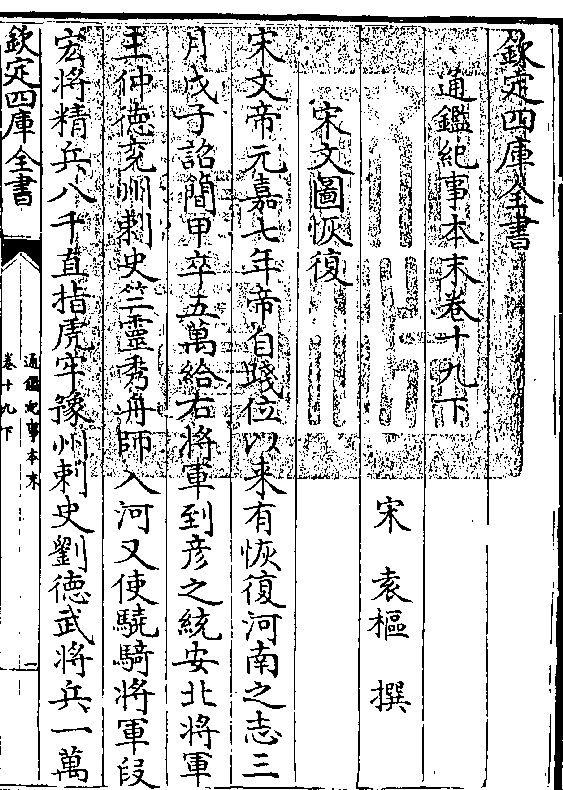 欽定四庫全書
通鑑紀事本末卷十九下
宋袁樞撰
宋文圖恢復
宋文帝元嘉七年帝自踐位以来有恢復河南之志三
月戊子詔簡甲卒五萬給右將軍到彦之統安北將軍
王仲徳兖州刺史竺靈秀舟師入河又使驍騎將軍段
宏將精兵八千直指虎牢豫州刺史劉徳武將兵一萬
欽定四庫全書
通鑑紀事本末
卷十九下